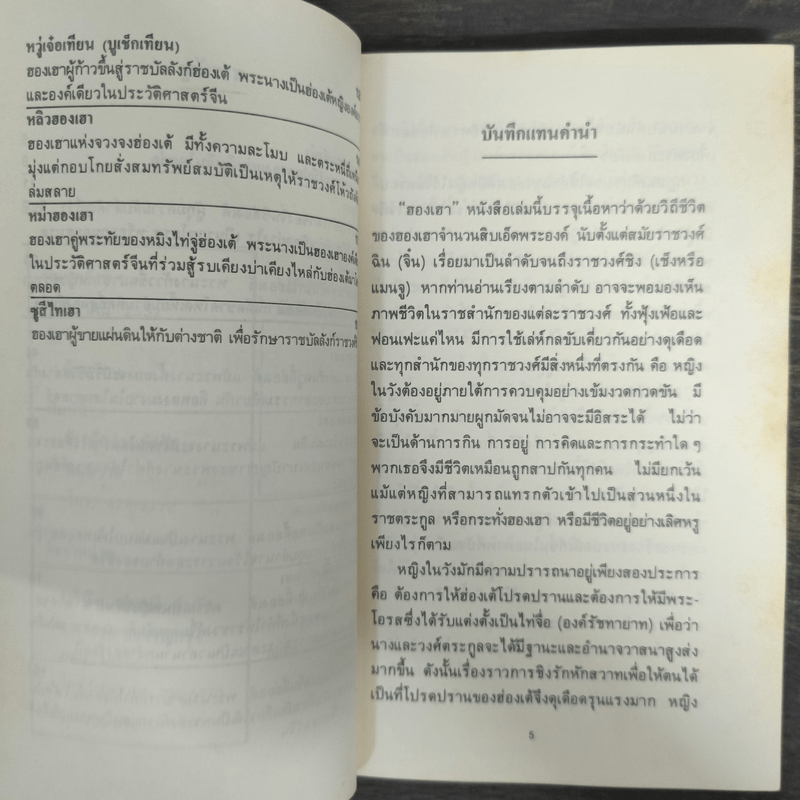 หวู่เจ๋อเทียน (บูเช็กเทียน)
ฮองเฮาผู้ก้าวขึ้นสู่ราชบัลลังก์ฮ่องเต้ พระนางเป็นฮ่องเต้หญิงองค์
และองค์เดียวในประวัติศาสตร์จีน
หลิวฮองเฮา
ฮองเฮาแห่งจวงจงฮ่องเต้ มีทั้งความละโมบ และตระหนี่ถี่
มุ่งแต่กอบโกยสั่งสมทรัพย์สมบัติเป็นเหตุให้ราชวงศ์โห้ว
ล่มสลาย
หม่าฮองเฮา
ฮองเฮาคู่พระทัยของหมิงไท่จู่ฮ่องเต้ พระนางเป็นฮองเฮาองค์
ในประวัติศาสตร์จีนที่ร่วมสู้รบเคียงบ่าเคียงไหล่กับฮ่องเต้มา
ตลอด
ซูสีไทเฮา
ฮองเฮาผู้ขายแผ่นดินให้กับต่างชาติ เพื่อรักษาราชบัลลังก์ราชวงศ์
บันทึกแทนคำนำ
“ฮองเฮา” หนังสือเล่มนี้บรรจุเนื้อหาว่าด้วยวิถีชีวิต
ของฮองเฮาจำนวนสิบเอ็ดพระองค์ นับตั้งแต่สมัยราชวงศ์
ฉิน (จิ๋น) เรื่อยมาเป็นลำดับจนถึงราชวงศ์ชิง (เช็งหรือ
แมนจู) หากท่านอ่านเรียงตามลำดับ อาจจะพอมองเห็น
ภาพชีวิตในราชสำนักของแต่ละราชวงศ์ ทั้งฟุ้งเฟ้อและ
ฟอนเฟะแค่ไหน มีการใช้เล่ห์กลขับเคี่ยวกันอย่างดุเดือด
และทุกสำนักของทุกราชวงศ์มีสิ่งหนึ่งที่ตรงกัน คือ หญิง
ในวังต้องอยู่ภายใต้การควบคุมอย่างเข้มงวดกวดขัน มี
ข้อบังคับมากมายผูกมัดจนไม่อาจจะมีอิสระได้ ไม่ว่า
จะเป็นด้านการกิน การอยู่ การคิดและการกระทำใด ๆ
พวกเธอจึงมีชีวิตเหมือนถูกสาปกันทุกคน ไม่มียกเว้น
แม้แต่หญิงที่สามารถแทรกตัวเข้าไปเป็นส่วนหนึ่งใน
ราชตระกูล หรือกระทั่งฮองเฮา หรือมีชีวิตอยู่อย่างเลิศหรู
เพียงไรก็ตาม
หญิงในวังมักมีความปรารถนาอยู่เพียงสองประการ
คือ ต้องการให้ฮ่องเต้โปรดปรานและต้องการให้มีพระ-
โอรสซึ่งได้รับแต่งตั้งเป็นไท่จื่อ (องค์รัชทายาท) เพื่อว่า
นางและวงศ์ตระกูลจะได้มีฐานะและอำนาจวาสนาสูงส่ง
มากขึ้น ดังนั้นเรื่องราวการชิงรักหักสวาทเพื่อให้ตนได้
เป็นที่โปรดปรานของฮ่องเต้จึงดุเดือดรุนแรงมาก หญิง
5